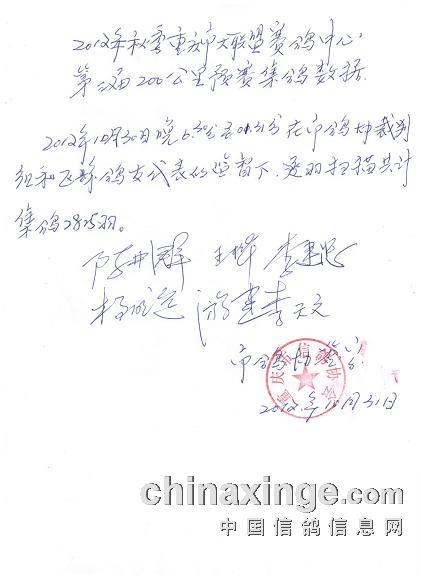 2012年秋季重庆市大联盟赛鸽中心
第二届200公里预赛集鸽数据
2012年10月30日晚6.30分至01.31分在市鸽协裁判
组和飞赛鸽友代表的监督下，逐羽扫描共计
集鸽2825羽。
李天文
市鸽协
重庆市信鸽协会
2012年10月31日
chinaxinge.com
中国信鸽信息网